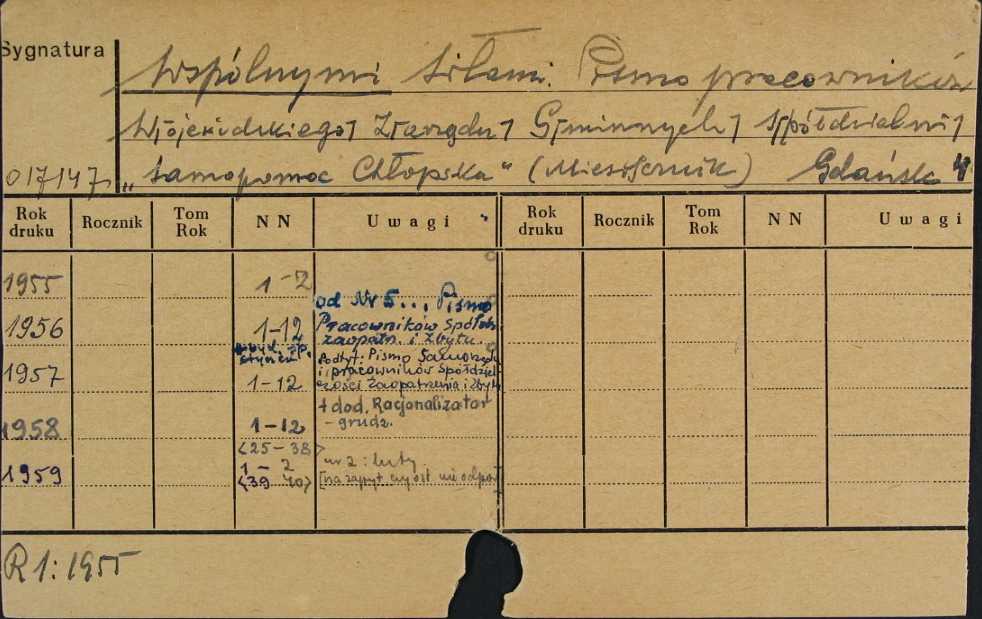 Sygnatura
Wspólnymi siłami. Pismo pracowników
W[ojewódzkiego] Z[arządu] G[minnych] S[półdzielni]
017147 „Samopomoc Chłopska" (Miesięcznik) Gdańsk
Rok druku Rocznik Tom Rok NN Uwagi Rok druku Rocznik Tom Rok NN Uwagi
1955 1-2
od Nr 5... Pismo
1956 1-12 Pracowników Spółdz.
zaopatrz. i Zbytu.
styczeń Podtyt: Pismo Samorządu
1957 i pracowników Spółdziel
1-12 czości Zaopatrzenia i Zbytu
+ dod. Racjonalizator
1958 1-12 - grudz.
<25-38>
1959 1-2 nr 2: luty
<39-40> [na zapyt. czy ost. nie odpow
R 1: 1955